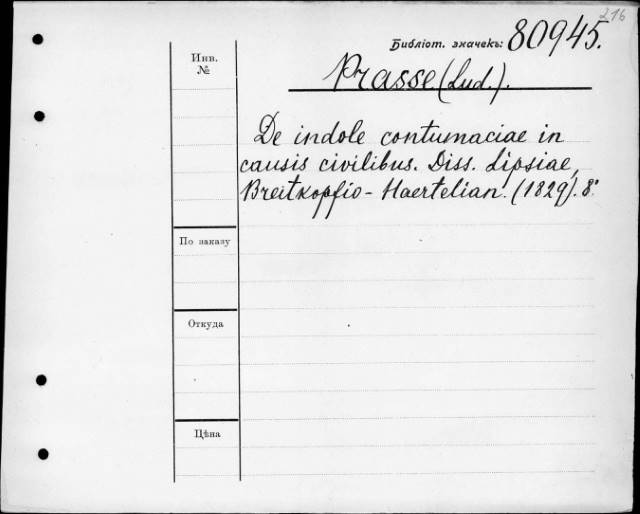 216
Библіот. значекъ: 80945.
Инв.
№
Prasse (Lud.).
De indole contumaciae in
causis civilibus. Diss. Lipsiae,
Breitkopfio-Haertelian. (1829). 8°
По заказу
Откуда
Цѣна